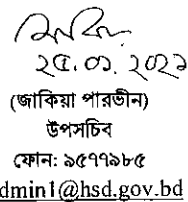 ২৫.০১.২০২১
(জাকিয়া পারভীন)
উপসচিব
ফোন: ৯৫৭৭৯৮৫
dmin1@hsd.gov.bd